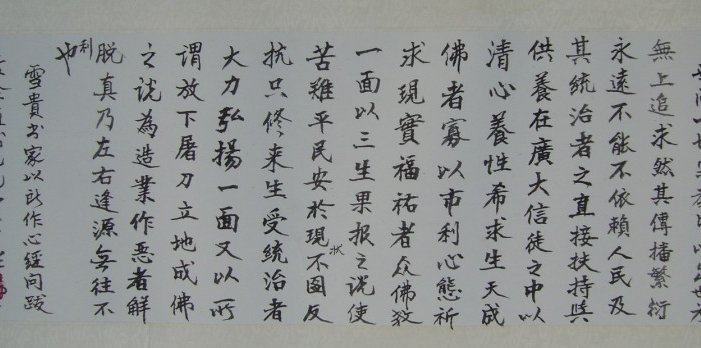 無上追求然其傳播繁衍
永遠不能不依賴人民及
其統治者之直接扶持與
供養在廣大信徒之中以
清心養性希求生天成
佛者寡以市利心態祈
求現實福祐者众佛教
一面以三生果报之说使
苦難平民安於現状不图反
抗只修来生受統治者
大力弘揚一面又以所
謂放下屠刀立地成佛
之说為造業作惡者解
脱真乃左右逢源无往不
利也
雪貴书家以所作心經问跋